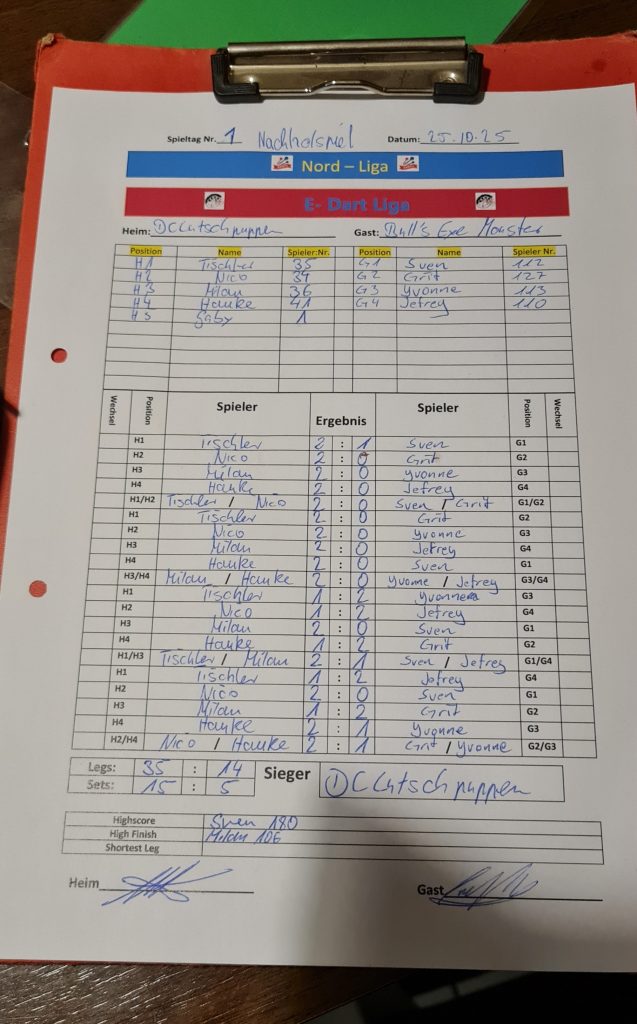 Spieltag Nr. 1 Nachholspiel Datum: 25.10.25
Nord – Liga
E- Dart Liga
Heim: DC Lutschpuppen Gast: Bull's Eye Monster
Position Name Spieler:Nr. Position Name Spieler Nr.
H1 Tischler 35 G1 Sven 112
H2 Nico 34 G2 Grit 127
H3 Milan 36 G3 Yvonne 113
H4 Hauke 41 G4 Jefrey 110
H5 Gaby 1
Wechsel Position Spieler Ergebnis Spieler Position Wechsel
H1 Tischler 2 : 1 Sven G1
H2 Nico 2 : 0 Grit G2
H3 Milan 2 : 0 Yvonne G3
H4 Hauke 2 : 0 Jefrey G4
H1/H2 Tischler / Nico 2 : 0 Sven / Grit G1/G2
H1 Tischler 2 : 0 Grit G2
H2 Nico 2 : 0 Yvonne G3
H3 Milan 2 : 0 Jefrey G4
H4 Hauke 2 : 0 Sven G1
H3/H4 Milan / Hauke 2 : 0 Yvonne / Jefrey G3/G4
H1 Tischler 1 : 2 G3
H2 Nico 1 : 2 Jefrey G4
H3 Milan 2 : 0 Sven G1
H4 Hauke 1 : 2 Grit G2
H1/H3 Tischler / Milan 2 : 1 Sven / Jefrey G1/G4
H1 Tischler 1 : 2 Jefrey G4
H2 Nico 2 : 0 Sven G1
H3 Milan 1 : 2 Grit G2
H4 Hauke 2 : 1 Yvonne G3
H2/H4 Nico / Hauke 2 : 1 Grit / Yvonne G2/G3
Legs: 35 : 14 Sieger DC Lutschpuppen
Sets: 15 : 5
Highscore Sven 180
High Finish Milan 106
Shortest Leg
Heim Gast